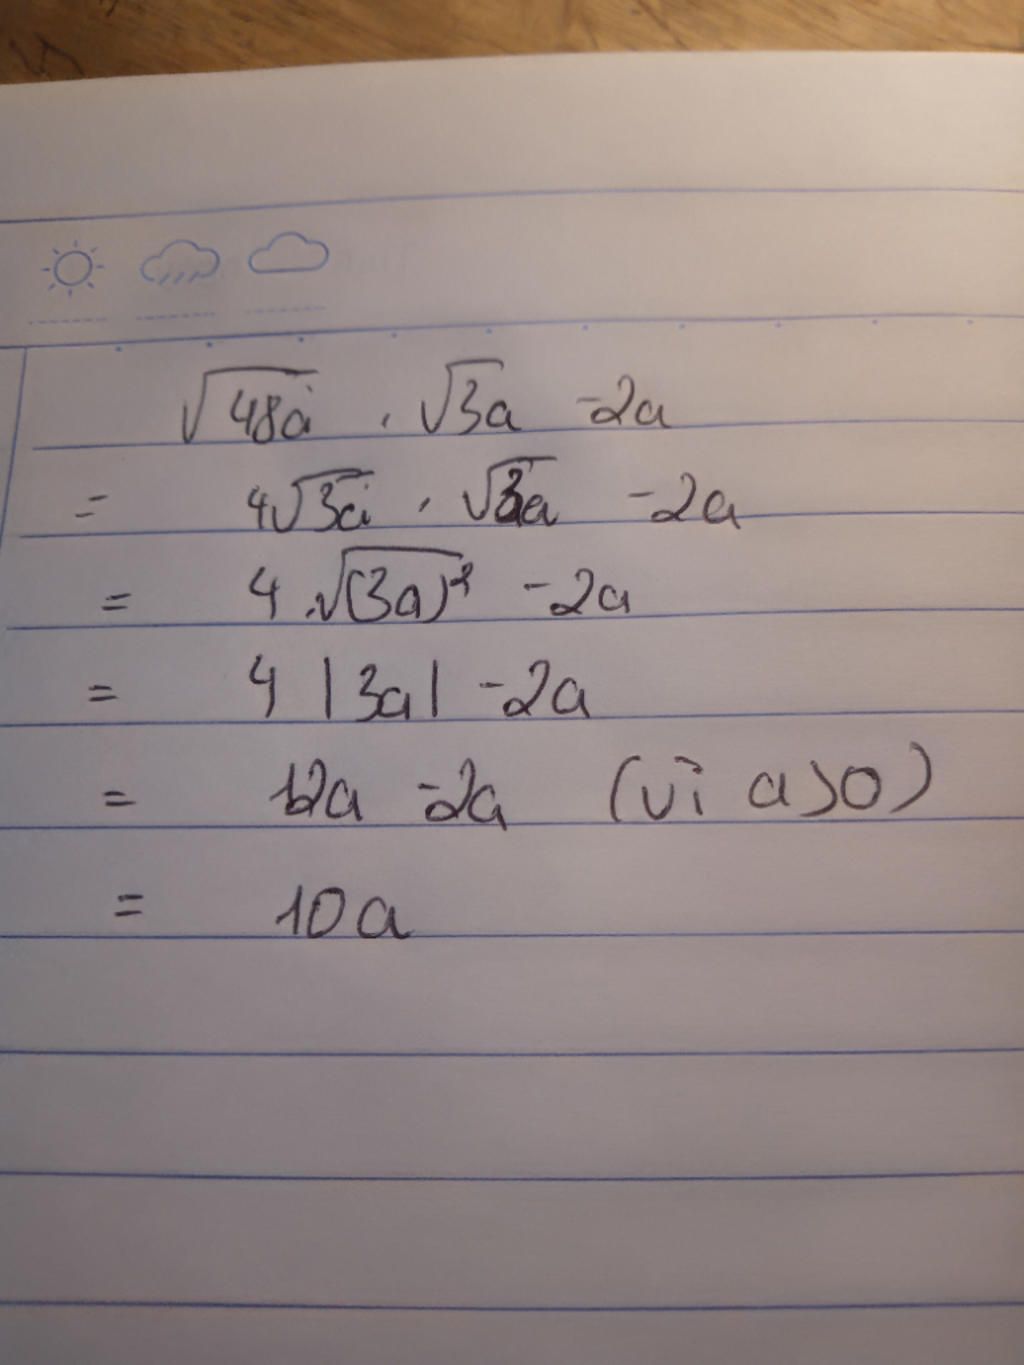 √48a . √3a - 2a
= 4√3a . √3a - 2a
= 4 . √(3a)² - 2a
= 4 |3a| - 2a
= 12a - 2a (vì a>0)
= 10a